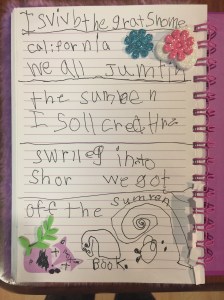 I svivb the gratshome
california
we all Jumtin
the sumben
I soll creatine
swrileg into
shor we got
off the sumren
BOOK